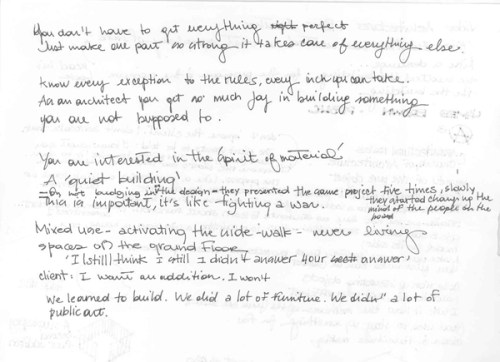 You don't have to get everything right perfect
Just make one part so strong it takes care of everything else.
Know every exception to the rules, every inch you can take.
As an architect you get so much joy in building something
you are not supposed to.
You are interested in the 'spirit of material'
A 'quiet building'
— On not budging in the design – they presented the same project five times, slowly
This is important, it's like fighting a war.
– they started changing the
mind of the people on the
board
Mixed use – activating the side-walk – never
spaces on the ground floor
'I (still) think I still I didn't answer your answer,
client: I want an addition. I won't
We learned to build. We did a lot of furniture. We didn't a lot of
public art.